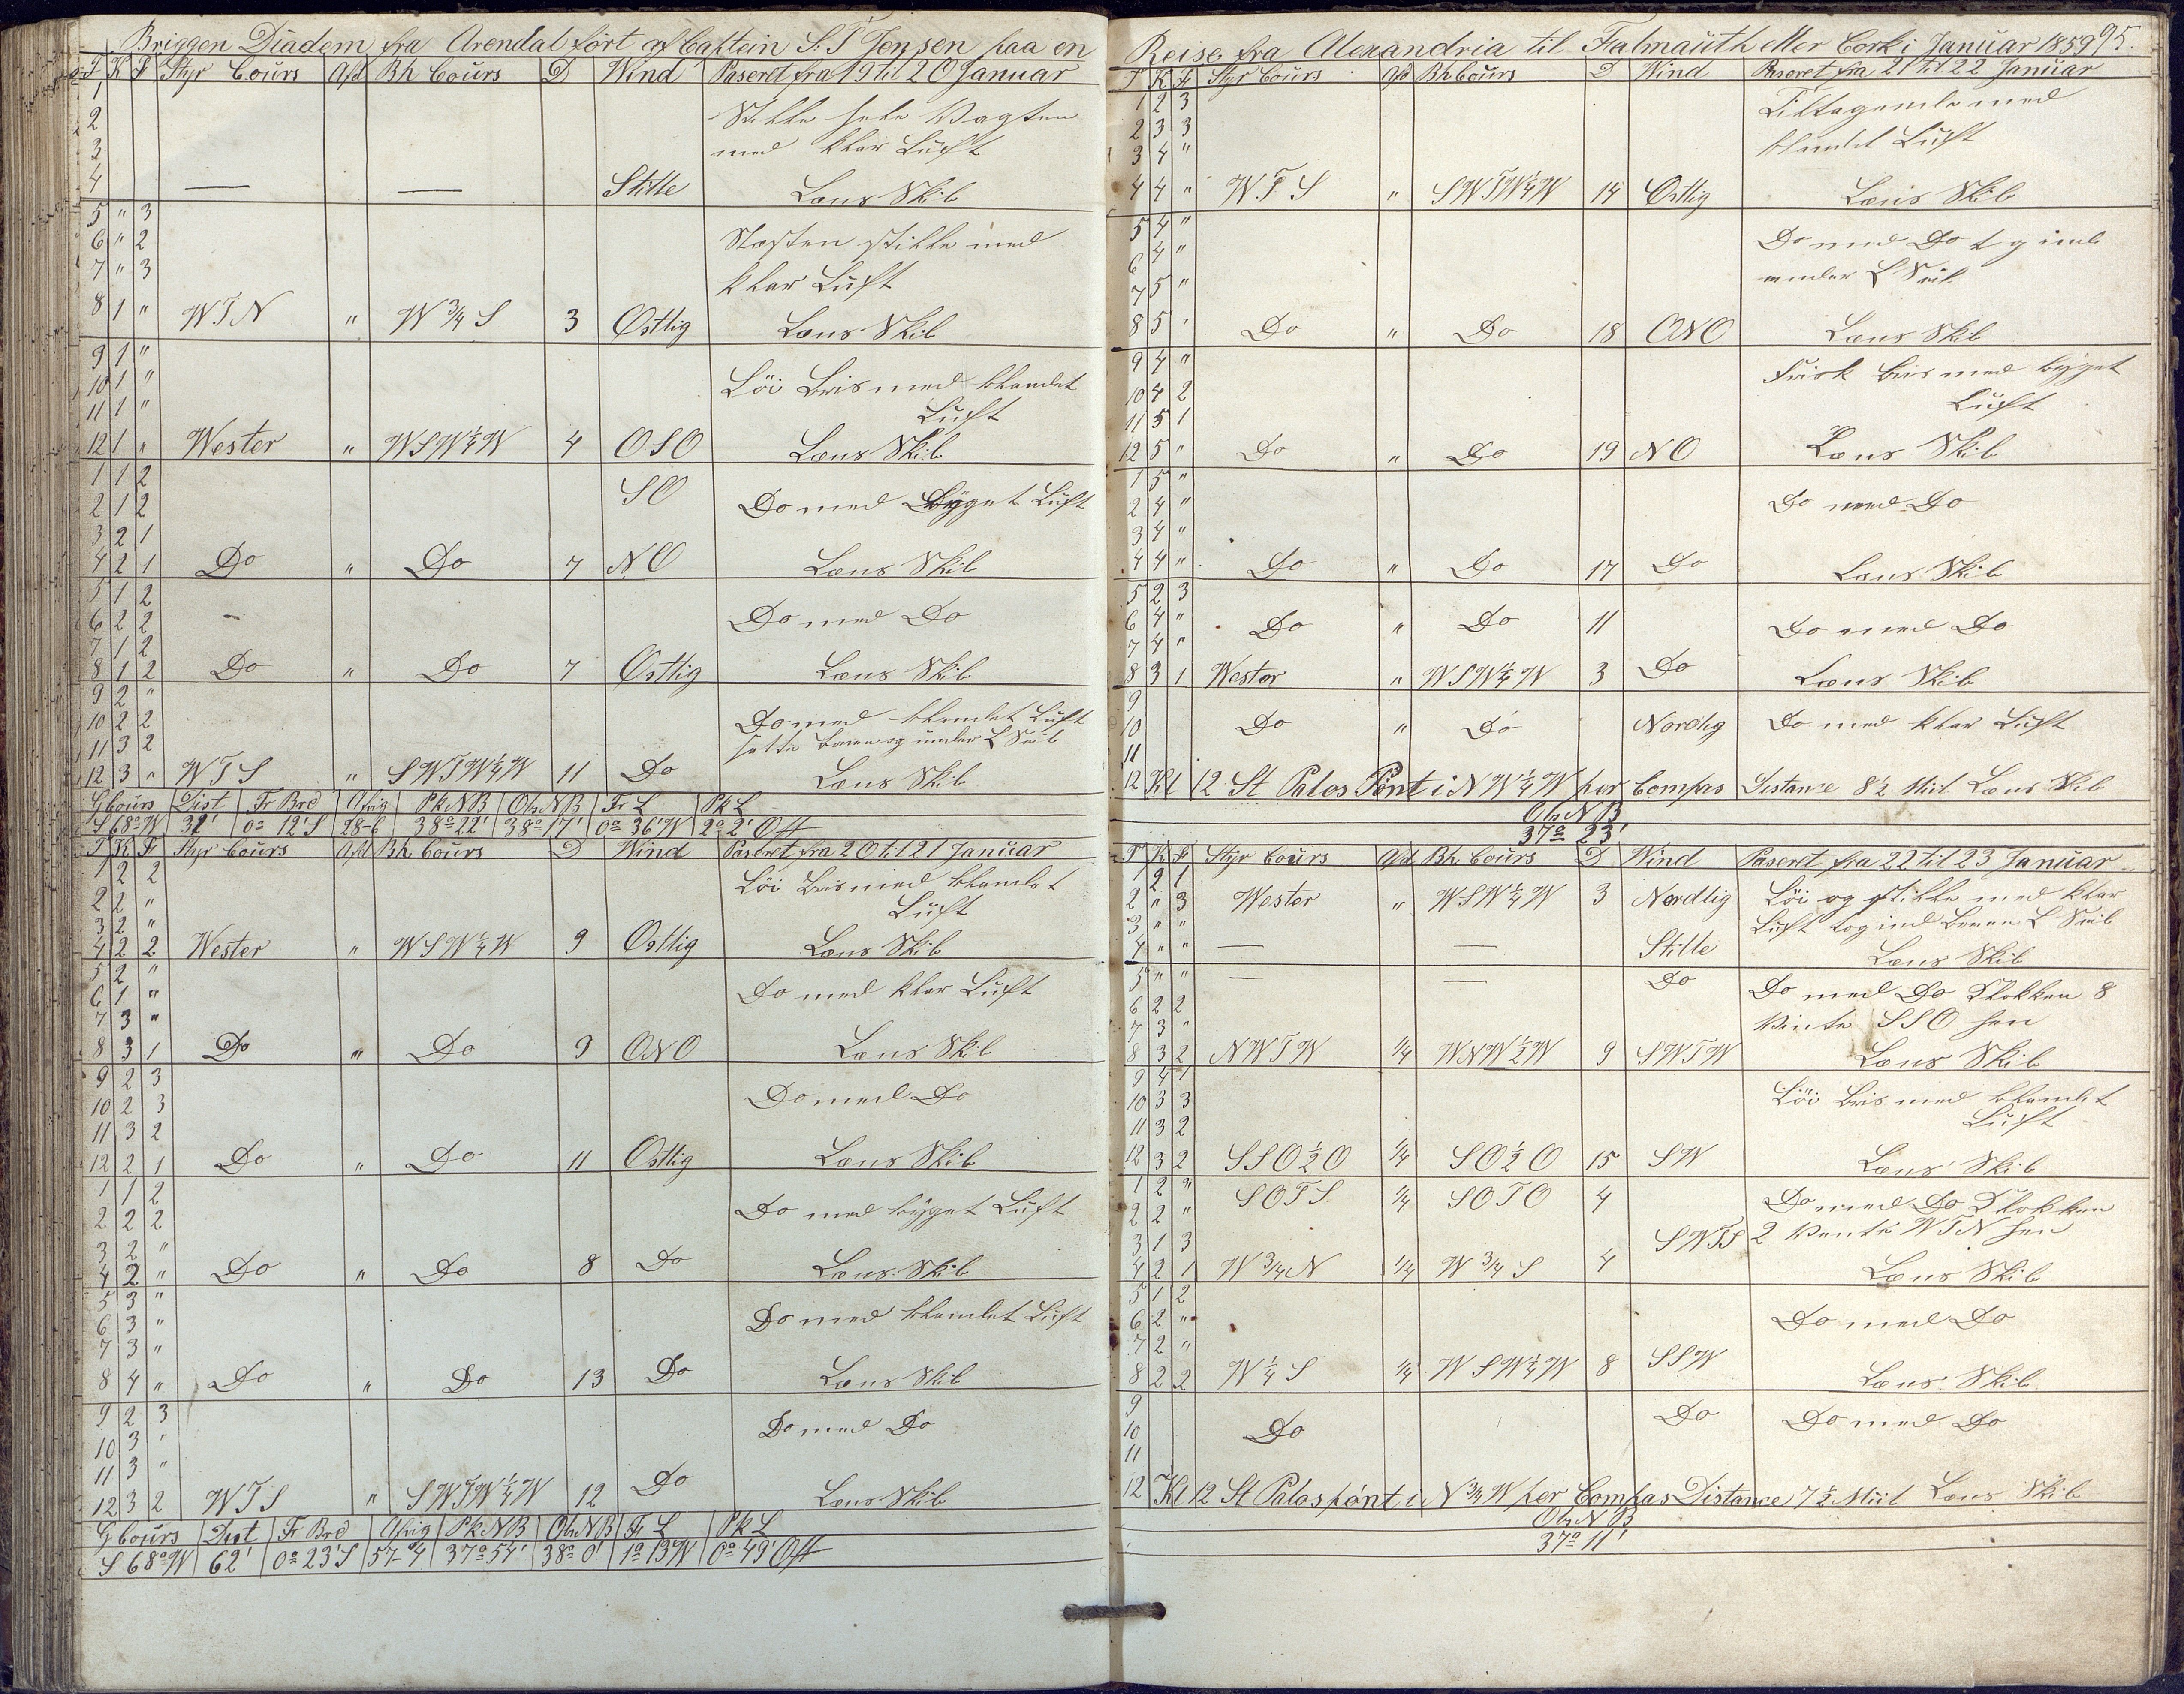 Briggen Diadem fra Arendal ført af Captein S. T Jensen paa en
T K F Styr Cours Afd Bh Cours D Wind Paseret fra 19 til 20 Januar
1
2 Stille hele Vagten
3 med klar Luft
4 — — Stille Læns Skib
5 " 3
6 " 2 Næsten stille med
7 " 3 klar Luft
8 1 " WTN " W 3/4 S 3 Ostlig Læns Skib
9 1 "
10 1 " Löi Bris med blandet
11 1 " Luft
12 1 " Wester " WSW 1/4 W 4 OSO Læns Skib
1 1 2 SO
2 1 2 Do med Byget Luft
3 2 1
4 2 1 Do " Do 7 NO Læns Skib
5 1 2
6 2 2 Do med Do
7 1 2
8 1 2 Do " Do 7 Ostlig Læns Skib
9 2 "
10 2 2 Do med blandet Luft
11 3 2 satte under L Seil
12 3 " WTS " SWTW 1/4 W 11 Do Læns Skib
G Cours Dist Fr Brd Afvig Pk NB Obs NB Fr L Pk L
S 68° W 31' 0° 12' S 28-6 38° 22' 38° 17' 0° 36' W 2° 2' Ost
T K F Styr Cours Afd Bh Cours D Wind Paseret fra 20 til 21 Januar
1 2 2 Löi Bris med blandet
2 2 " Luft
3 2 "
4 2 2 Wester " WSW 1/4 W 9 Ostlig Læns Skib
5 2 "
6 1 " Do med klar Luft
7 3 "
8 3 1 Do " Do 9 ONO Læns Skib
9 2 3
10 2 3 Do med Do
11 3 2
12 2 1 Do " Do 11 Ostlig Læns Skib
1 1 2
2 2 2 Do med byget Luft
3 2 "
4 2 " Do " Do 8 Do Læns Skib
5 3 "
6 3 " Do med blandet Luft
7 3 "
8 4 " Do " Do 13 Do Læns Skib
9 2 3
10 3 " Do med Do
11 3 "
12 3 2 WTS " SWTW 1/4 W 12 Do Læns Skib
G Cours Dist Fr Brd Afvig Pk NB Obs NB Fr L Pk L
S 68° W 62' 0° 23' S 57-4 37° 54' 38° 0' 1° 13' W 0° 49' Ost
Reise fra Alexandria til Falmauth eller Cork i Januar 1859 95.
T K F Styr Cours Afd Bh Cours D Wind Paseret fra 21 til 22 Januar
1 2 3 Tiltagende med
2 3 3 blandet Luft
3 4 "
4 4 " WTS " SWTW 1/4 W 14 Ostlig Læns Skib
5 4 "
6 4 " Do med Do
7 5 " under L Seil
8 5 " Do " Do 18 ONO Læns Skib
9 4 " Frisk bris med byget
10 4 2 Luft
11 5 1
12 5 " Do " Do 19 NO Læns Skib
1 5 "
2 4 " Do med Do
3 4 "
4 4 " Do " Do 17 Do Læns Skib
5 2 3
6 4 " Do " Do 11 Do med Do
7 4 "
8 3 1 Wester " WSW 1/4 W 3 Do Læns Skib
9
10 Do " Do Nordlig Do med klar Luft
11
12 Kl 12 St Palos Pönt i NW 1/4 W per Compas Distance 8 1/2 Miil Læns Skib
Obs NB
37° 23'
T K F Styr Cours Afd Bh Cours D Wind Paseret fra 22 til 23 Januar
1 2 1
2 " 3 Wester " WSW 1/4 W 3 Nordlig Löi og stille med klar
3 " " Luft tog ind L Seil
4 " " — — Stille Læns Skib
5 " " — — Do Do med Do Klokken 8
6 2 2
7 3 " Vente SSO hen
8 3 2 NWTW 1/4 WNW 1/2 W 9 SWTW Læns Skib
9 4 1
10 3 3 Löi Bris med blandet
11 3 2 Luft
12 3 2 SSO 1/2 O 1/4 SO 1/2 O 15 SW Læns Skib
1 2 " SOTS 1/4 SOTO 4 Do med Do Klokken
2 2 "
3 1 3 SWTS 2 Vente WTN hen
4 2 1 W 3/4 N 1/4 W 3/4 S 4 Læns Skib
5 1 2
6 2 " Do med Do
7 2 "
8 2 2 W 1/4 S 1/4 WSW 1/4 W 8 SSW Læns Skib
9
10 Do Do Do med Do
11
12 Kl 12 St Palos pönt i N 3/4 W per Compas Distance 7 1/2 Miil Læns Skib
Obs NB
37° 11'